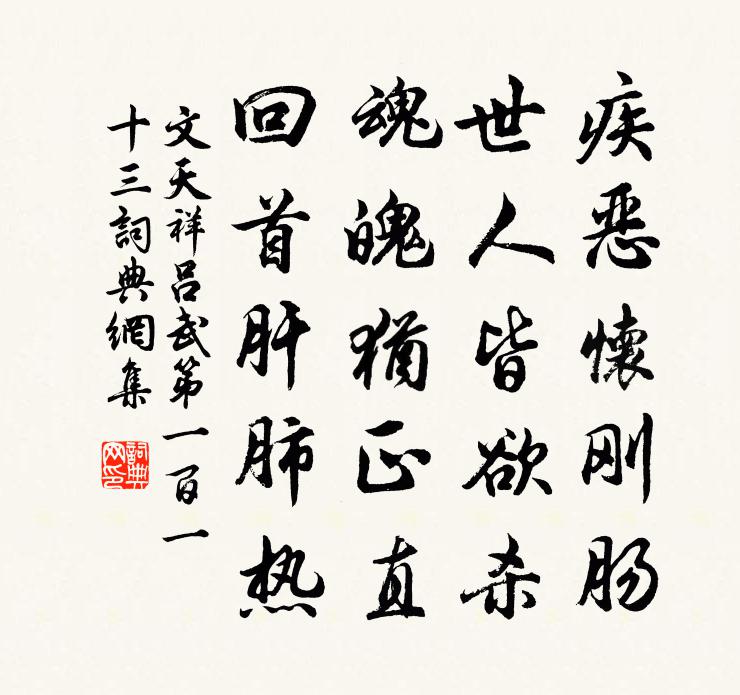 疾恶懷刚肠
世人皆欲杀
魂魄猶正直
回首肝肺热
文天祥吕武第一百一
十三詞典網集
詞典
网印